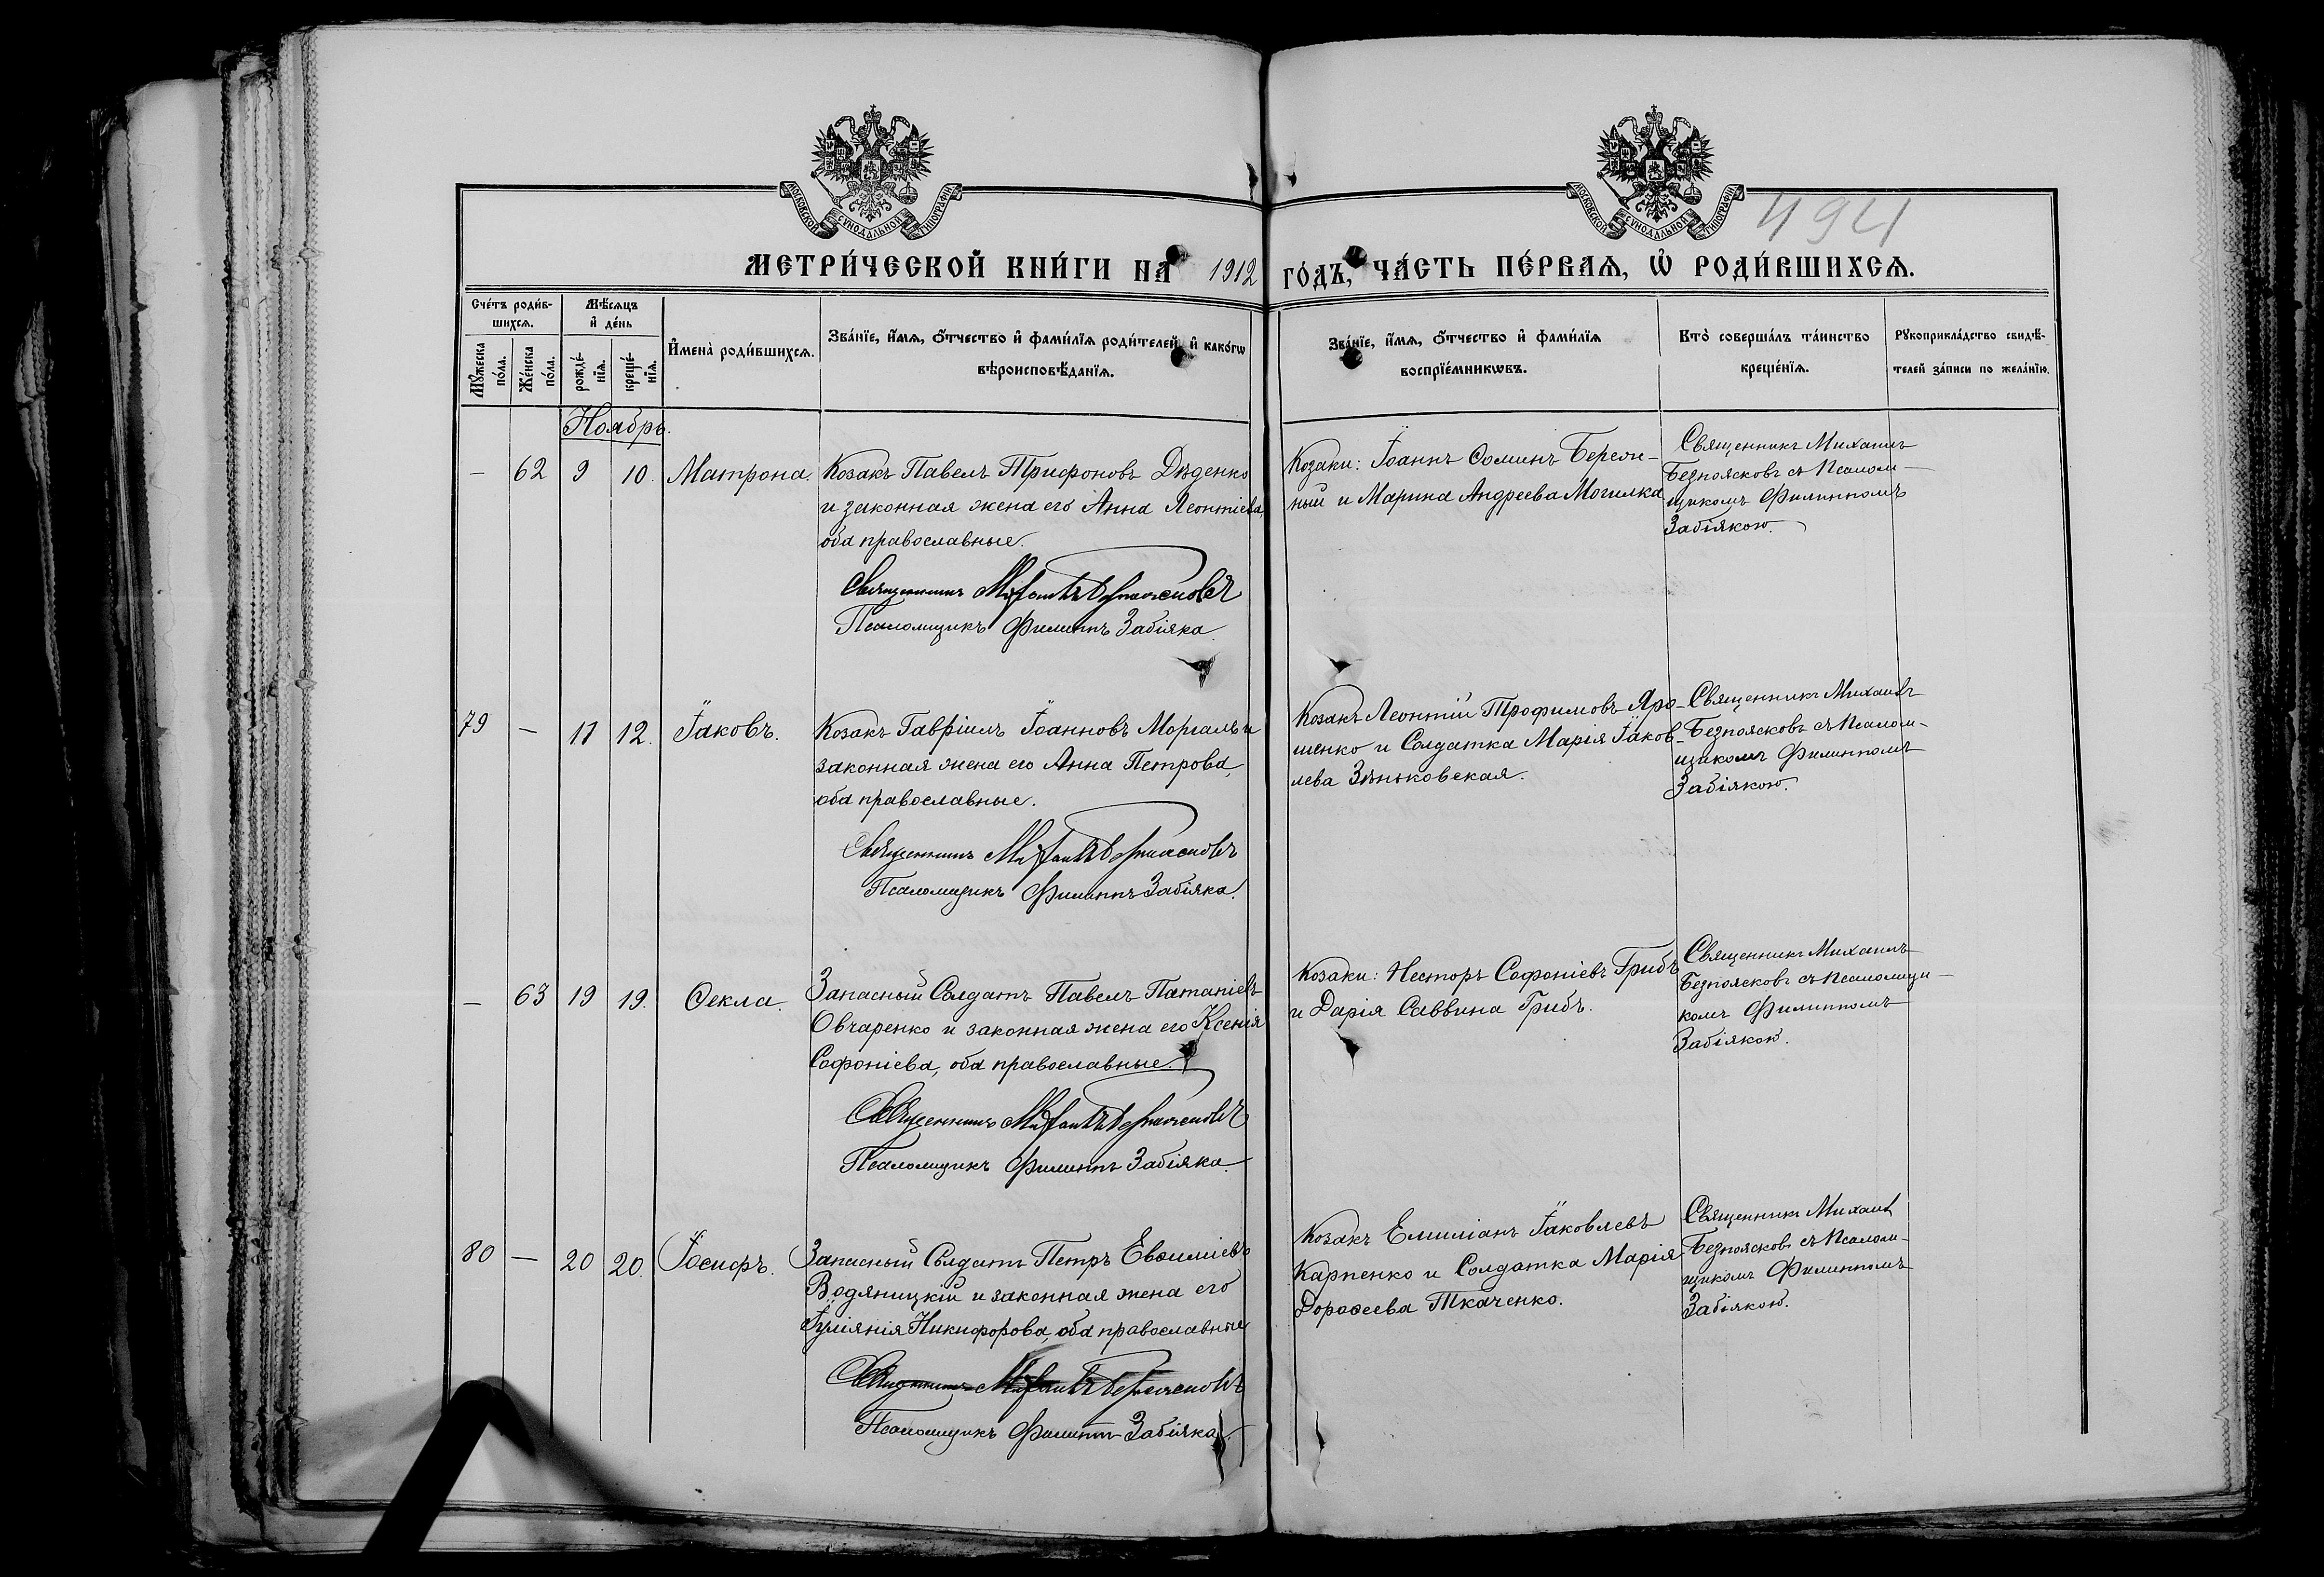 МОСКОВСКОЙ СѴНОДАЛЬНОЙ ТИПОГРАФІИ
МОСКОВСКОЙ СѴНОДАЛЬНОЙ ТИПОГРАФІИ
494
МЕТРИ́ЧЕСКОЙ КНИ́ГИ НА 1912 ГО́ДЪ, ЧА́СТЬ ПЕ́РВАѦ, Ѡ҆ РОДИ́ВШИХСѦ.
Сче́тъ роди́в-
шихсѧ.
Мꙋ́жеска
по́ла.
Же́нска
по́ла.
Мѣ́сѧцъ
и҆ де́нь
рожде́-
нїѧ.
креще́-
нїѧ.
И҆мена̀ роди́вшихсѧ.
Зва́нїе, и҆́мѧ, ѻ҆́тчество и҆ фами́лїѧ роди́телей, и҆ како́гѡ
вѣроисповѣ́данїѧ.
Зва́нїе, и҆́мѧ, ѻ҆́тчество и҆ фами́лїѧ
воспрїе́мникѡвъ.
Кто̀ соверша́лъ та́инство
креще́нїѧ.
Рꙋкоприкла́дство свидѣ́-
телей за́писи по жела́нїю.
Ноябрь.
— 62 9 10. Матрона.
Козакъ Павелъ Трифоновъ Дѣденко
и законная жена его Анна Леонтіева,
оба православные.
Священникъ Михаилъ Безпоясковъ
Псаломщикъ Филиппъ Забіяка.
Козаки: Іоаннъ Ѳоминъ Береж-
ный и Марина Андреева Могилка
Священникъ Михаилъ
Безпоясковъ съ Псалом-
щикомъ Филиппомъ
Забіякою.
79 — 11 12. Іаковъ.
Козакъ Гавріилъ Іоанновъ Моргаль и
законная жена его Анна Петрова,
оба православные.
Священникъ Михаилъ Безпоясковъ
Псаломщикъ Филиппъ Забіяка.
Козакъ Леонтій Трофимовъ Яро-
шенко и Солдатка Марія Іаков-
лева Зѣньковская.
Священникъ Михаилъ
Безпоясковъ съ Псалом-
щикомъ Филиппомъ
Забіякою.
— 63 19 19. Ѳекла.
Запасный Солдатъ Павелъ Патапіевъ
Овчаренко и законная жена его Ксенія
Софоніева, оба православные.
Священникъ Михаилъ Безпоясковъ
Псаломщикъ Филиппъ Забіяка.
Козаки: Несторъ Софоніевъ Грибъ
и Дарія Саввина Грибъ.
Священникъ Михаилъ
Безпоясковъ съ Псаломщи-
комъ Филиппомъ
Забіякою.
80 — 20 20. Іосифъ.
Запасный Солдатъ Петръ Евѳиміевъ
Водяницкій и законная жена его
Іуліянія Никифорова, оба православные
Священникъ Михаилъ Безпоясковъ
Псаломщикъ Филиппъ Забіяка.
Козакъ Емиліанъ Іаковлевъ
Карпенко и Солдатка Марія
Дороѳеева Ткаченко.
Священникъ Михаилъ
Безпоясковъ съ Псалом-
щикомъ Филиппомъ
Забіякою.